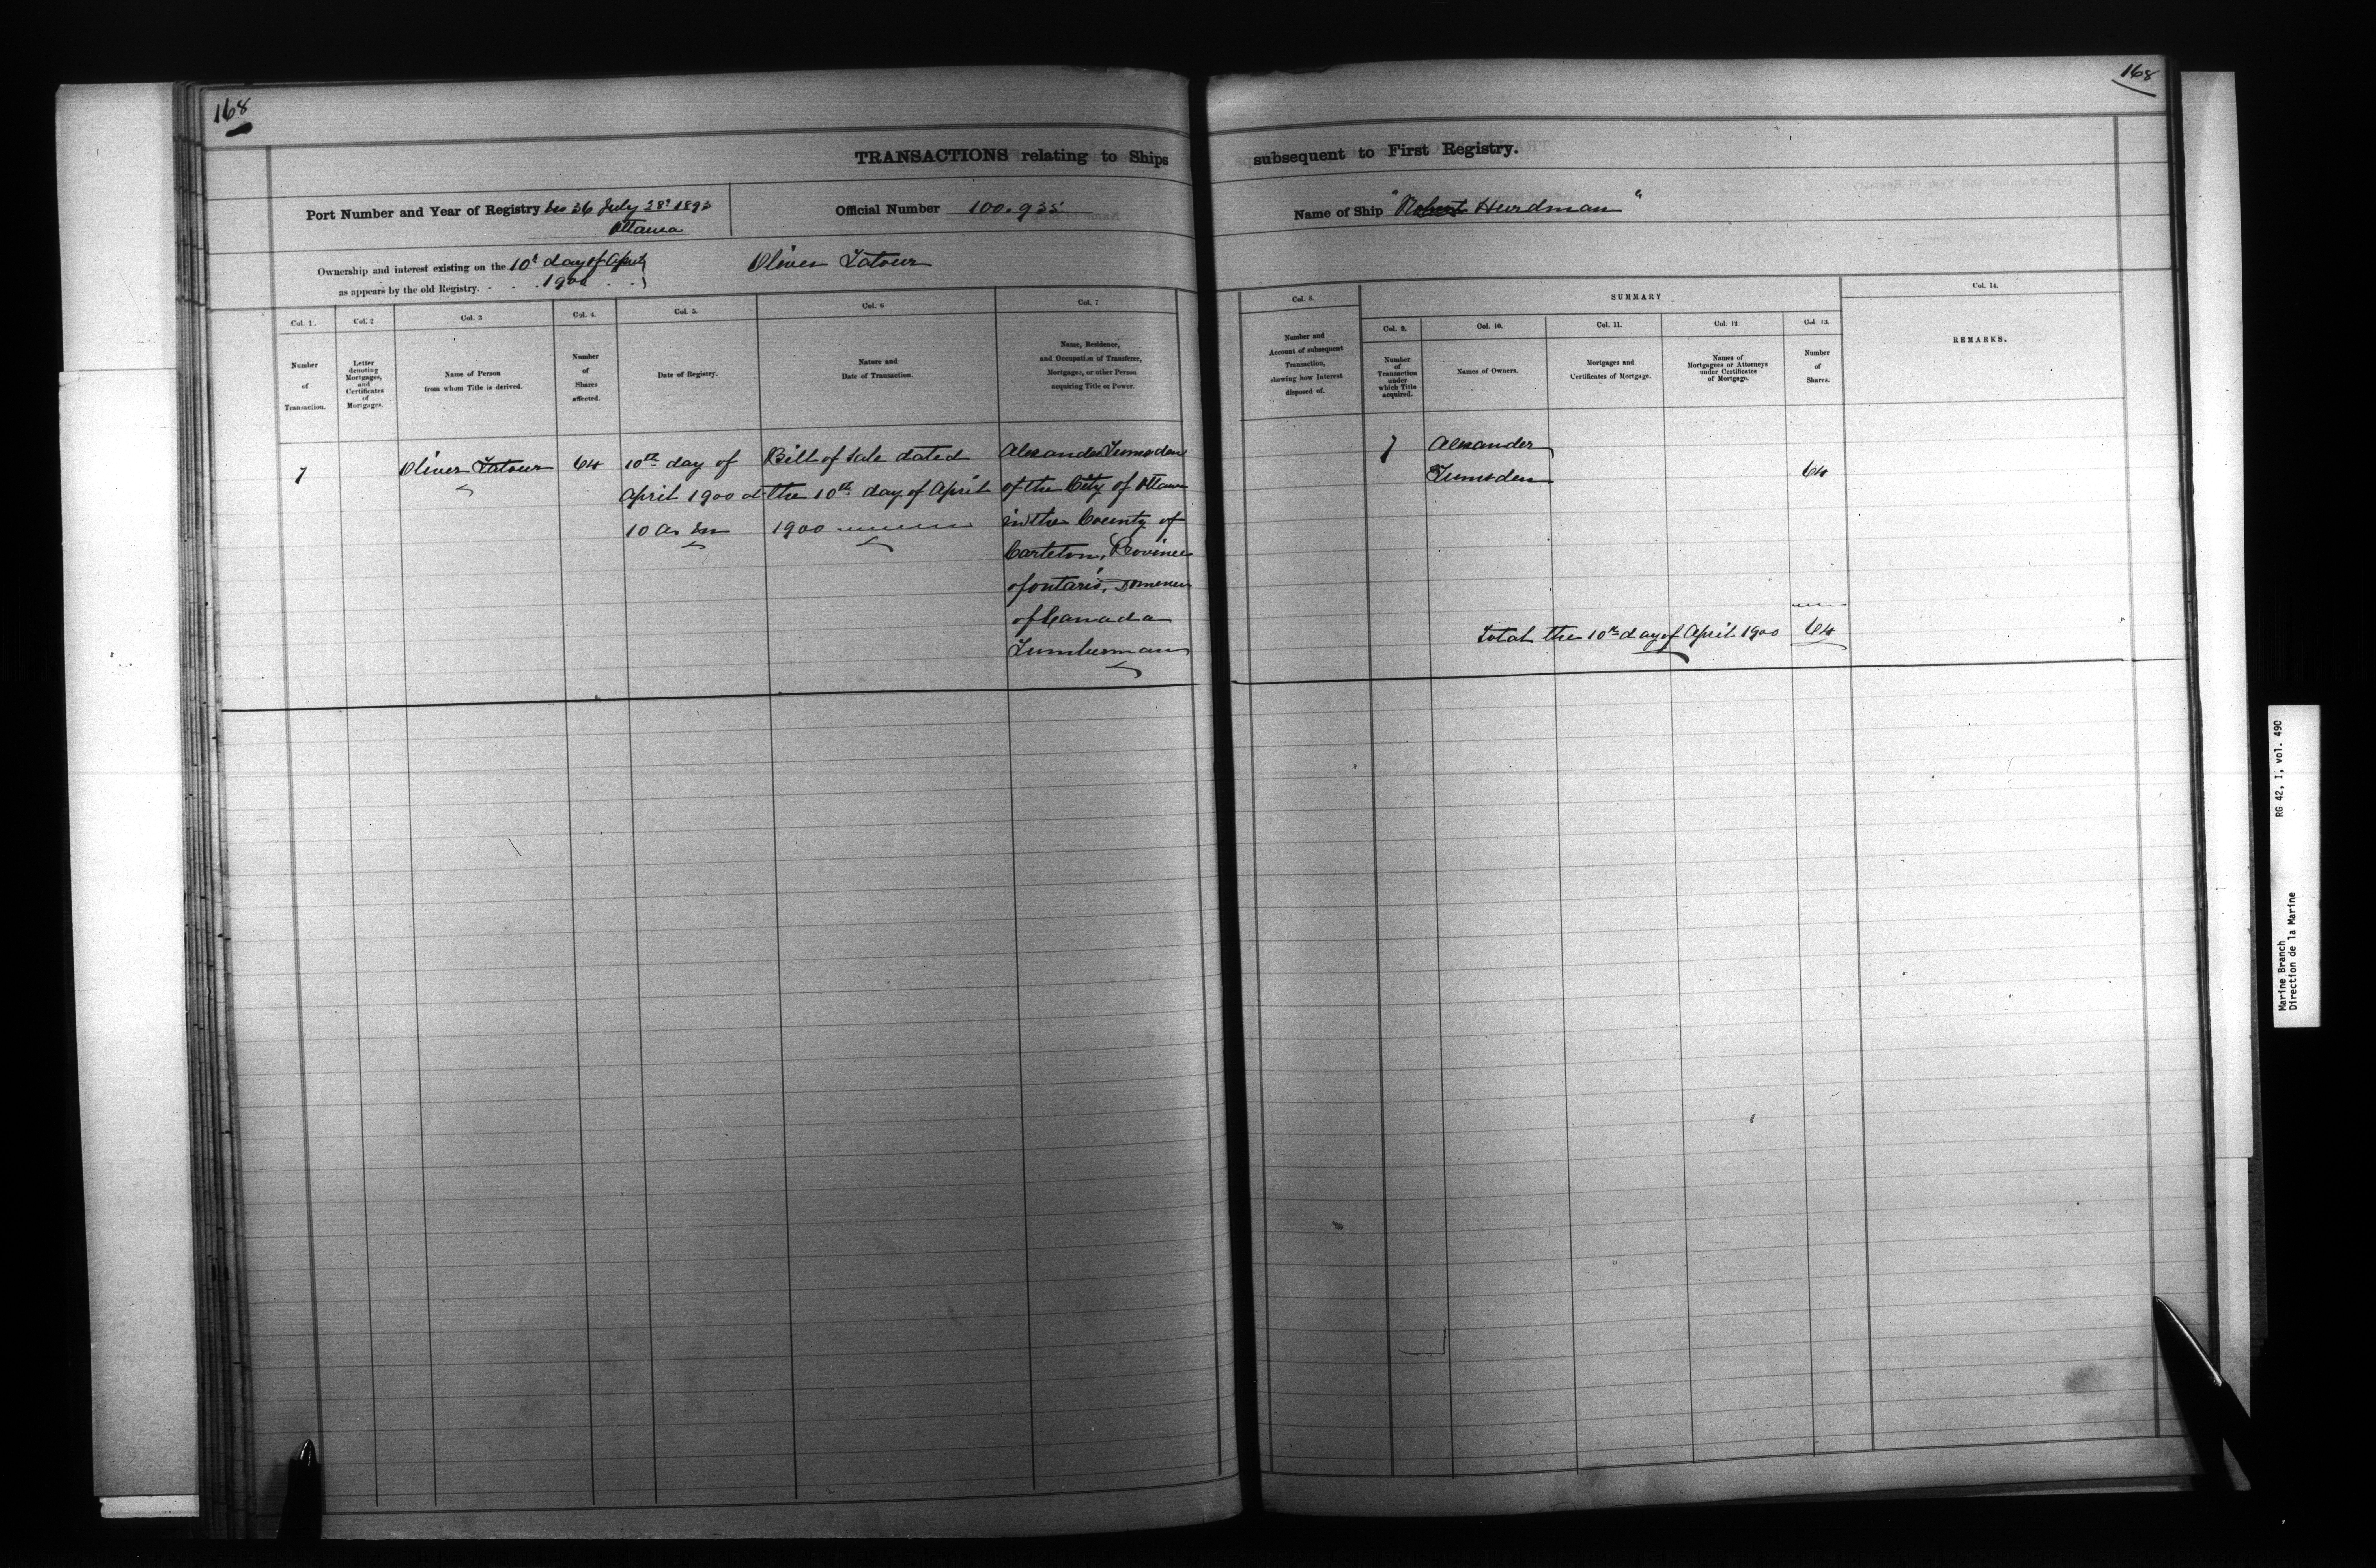 168
TRANSACTIONS relating to Ships
Port Number and Year of Registry No 36 July 28th 1893
Ottawa
Official Number 100.935
Ownership and interest existing on the 10th day of April
as appears by the old Registry. 1900
Oliver Latour
Col. 1.
Number
of
Transaction.
Col. 2
Letter
denoting
Mortgages,
and
Certificates
of
Mortgages.
Col. 3
Name of Person
from whom Title is derived.
Col. 4.
Number
of
Shares
affected.
Col. 5.
Date of Registry.
Col. 6
Nature and
Date of Transaction.
Col. 7
Name, Residence,
and Occupation of Transferee,
Mortgagee, or other Person
acquiring Title or Power.
7
Oliver Latour
64
10th day of
April 1900 at
10 a. m
Bill of Sale dated
the 10th day of April
1900
Alexander Lumsden
of the City of Ottawa
in the County of
Carleton, Province
of Ontario, Dominion
of Canada
Lumberman
168
subsequent to First Registry.
Name of Ship "Robert Hurdman"
Col. 8.
Number and
Account of subsequent
Transaction,
showing how Interest
disposed of.
SUMMARY
Col. 9.
Number
of
Transaction
under
which Title
acquired.
Col. 10.
Names of Owners.
Col. 11.
Mortgages and
Certificates of Mortgage.
Col. 12
Names of
Mortgagees or Attorneys
under Certificates
of Mortgage.
Col. 13.
Number
of
Shares.
Col. 14.
REMARKS.
7
Alexander
Lumsden
64
Total the 10th day of April 1900 64
Marine Branch RG 42, I, vol. 490
Direction de la Marine